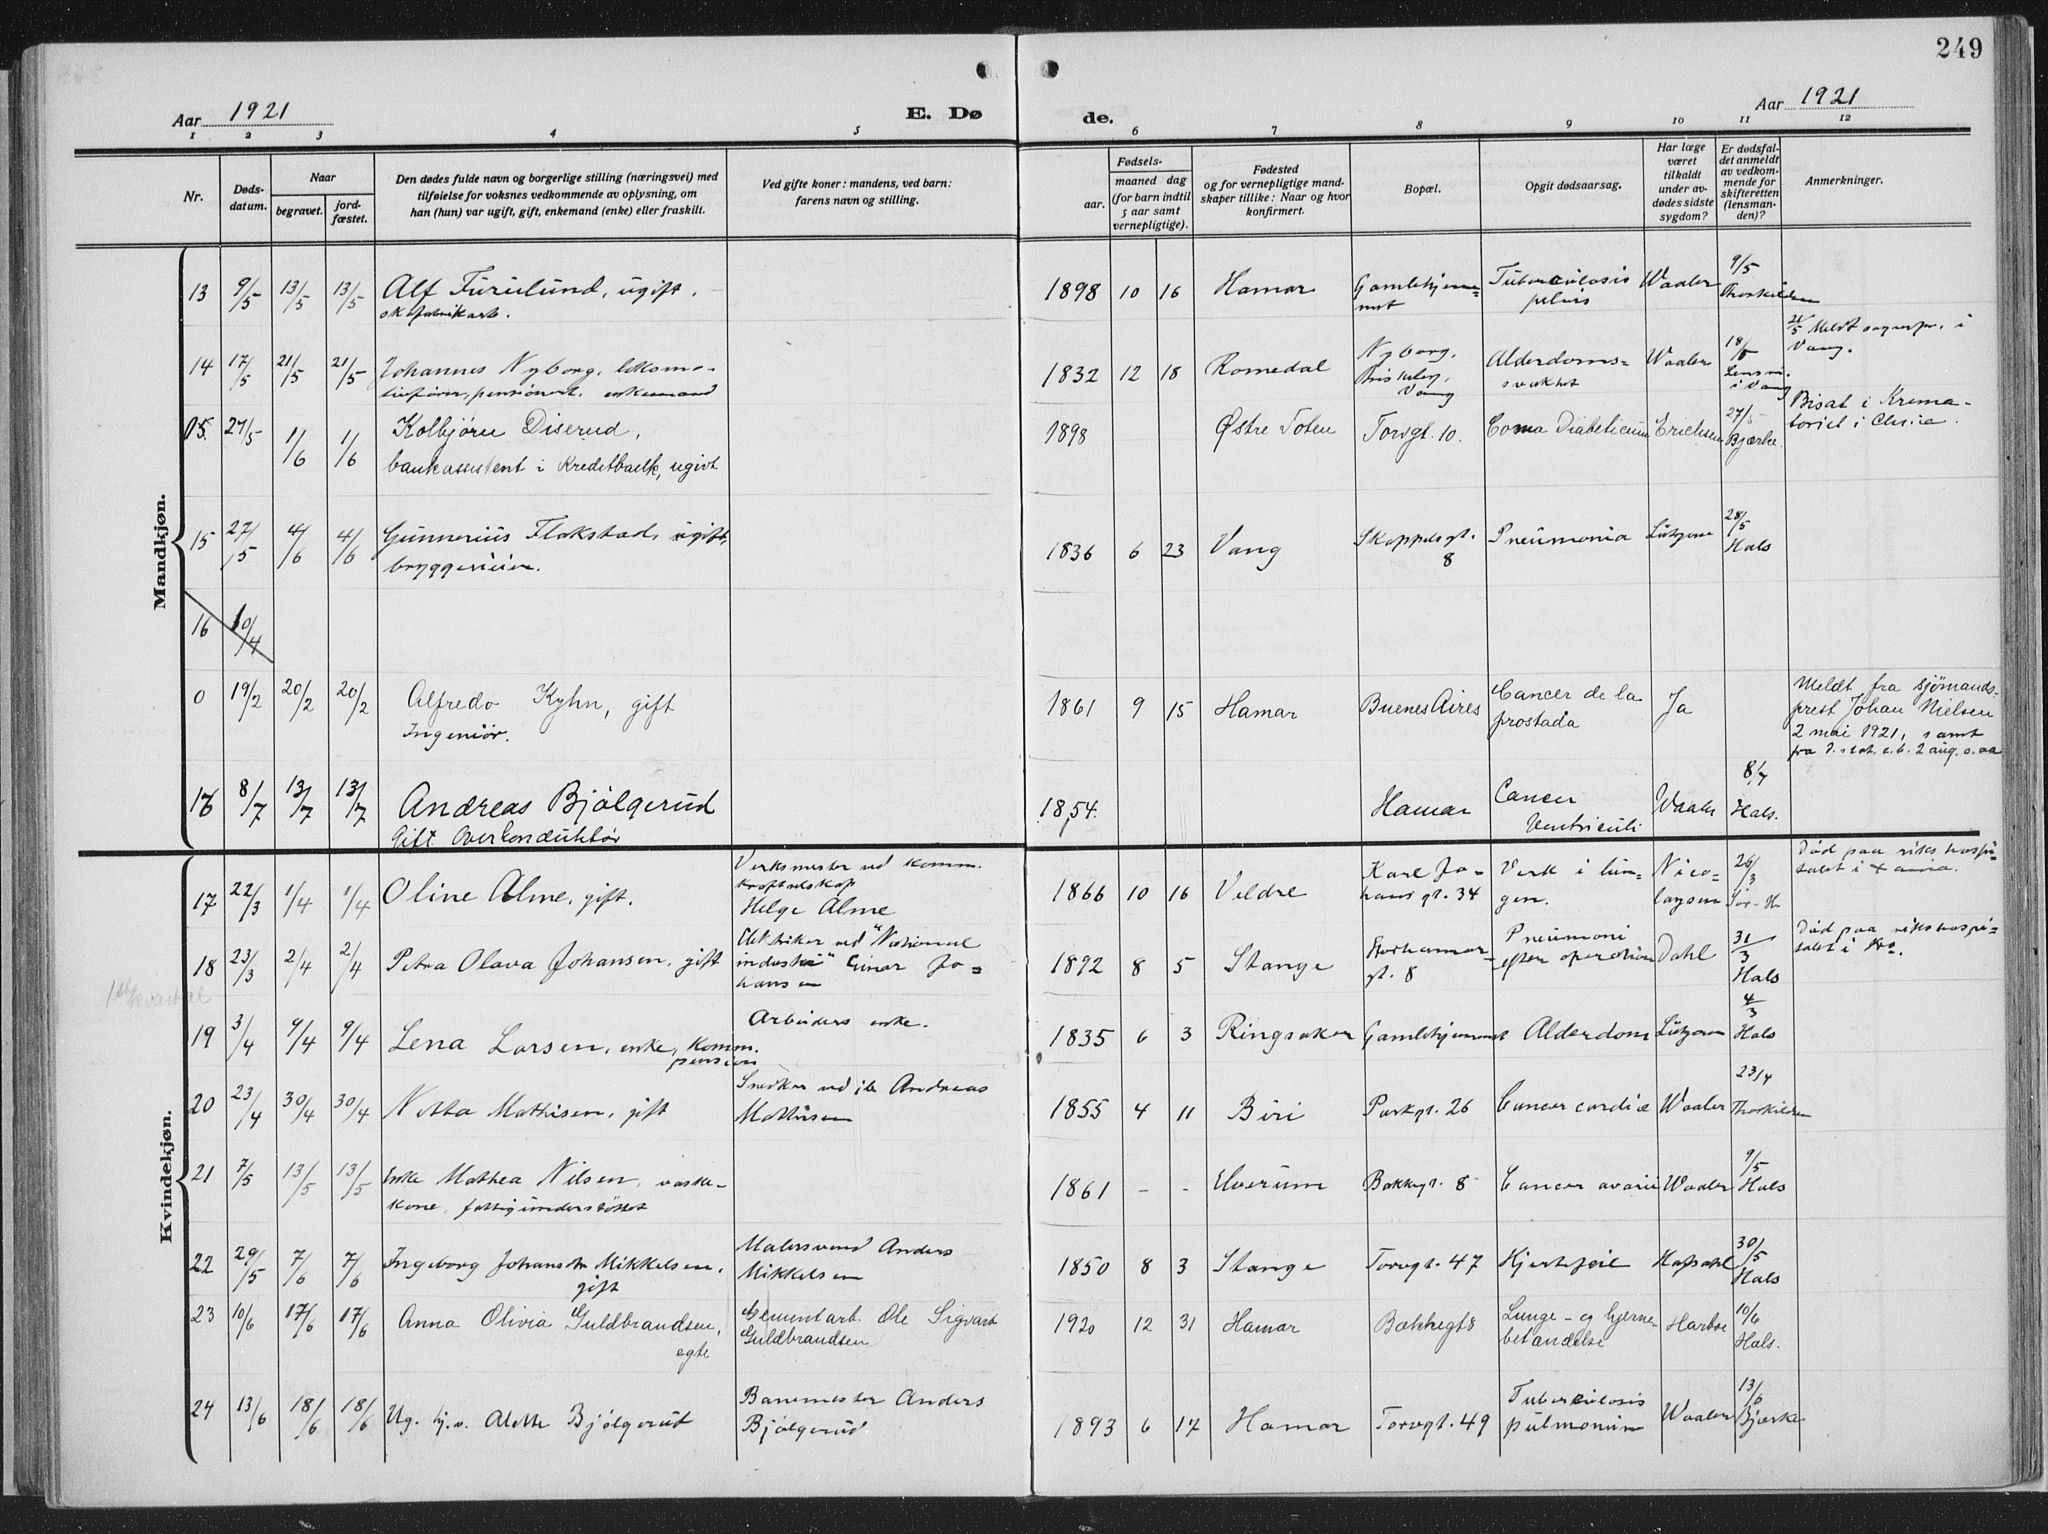 249
Aar 1921
E. Dø
de.
Aar 1921
1 2 3 4 5 6 7 8 9 10 11 12
Nr.
Døds-
datum.
Naar
begravet.
jord-
fæstet.
Den dødes fulde navn og borgerlige stilling (næringsvei) med
tilføielse for voksnes vedkommende av oplysning, om
han (hun) var ugift, gift, enkemand (enke) eller fraskilt.
Ved gifte koner: mandens, ved barn:
farens navn og stilling.
Fødsels-
aar.
maaned dag
(for barn indtil
5 aar samt
vernepligtige).
Fødested
og for vernepligtige mand-
skaper tillike: Naar og hvor
konfirmert.
Bopæl.
Opgit dødsaarsag.
Har læge
været
tilkaldt
under av-
dødes sidste
sygdom?
Er dødsfal-
det anmeldt
av vedkom-
mende for
skifteretten
(lensman-
den)?
Anmerkninger.
Mandkjøn.
13 9/5 13/5 13/5 Alf Furulund, ugift, 1898 10 16 Hamar Gamlehjem= Tuberculosis Waaler 9/5
skofabrikarb. met pelvis Thorkildsen
14 17/5 21/5 21/5 Johannes Nyborg, 1832 12 18 Romedal Nyborg, Alderdoms= Waaler 18/5 21/5 Meldt sognepr. i
pensionert. enkemand Vang svakhet Lensm. i Vang Vang.
15. 27/5 1/6 1/6 Kolbjörn Diserud, 1898 Østre Toten Torvgt. 10. Coma Diabeticum Erichsen 27/5 Bjerke. Bisat i Krema-
bankassistent i Kreditbank, ugivt toriet i
15 27/5 4/6 4/6 Gunnerius Flakstad, ugift, 1836 6 23 Vang Skappelsgt. 8 Pneumonia Lützow 28/5 Hals
bryggerieier.
16 10/4
0 19/2 20/2 20/2 Alfredo Kyhn, gift 1861 9 15 Hamar Buenes Aires Cancer de la Ja Meldt fra sjömands-
Ingeniör. prostada prest Johan Nielsen
2 mai 1921, samt
fra 2 aug. s. aa
16 8/7 13/7 13/7 Andreas Bjölgerud 1854. Hamar Cancer Waaler 8/7 Hals.
Gift Overkonduktör Ventriculi
Kvindekjøn.
17 22/3 1/4 1/4 Oline Alme, gift. Verksmester ved komm. 1866 10 16 Veldre Karl Jo- Verk i lun- Nico- 26/3 Död paa rikshospi-
kraftselskap hansgt. 34 gen. laysen talet i
Helge Alme
18 23/3 2/4 2/4 Petra Olava Johansen, gift Elektriker ved "National 1892 8 5 Stange Storhamar- Pneumoni Dahl 31/3 Död paa rikshospi=
industri" Einar Jo= gt. 8 efter operation Hals talet i Kra.
hansen
1ste kvartal
19 3/4 9/4 9/4 Lena Larsen, enke, komm. Arbeiders enke. 1835 6 3 Ringsaker Gamlehjemmet Alderdom Lützow 4/3 Hals
pension
20 23/4 30/4 30/4 Netta Mathisen, gift Snedker ved jb. Andreas 1855 4 11 Biri Parkgt. 26 Cancer cardiæ Waaler 23/4 Thorkildsen
Mathisen
21 7/5 13/5 13/5 Enke Mathea Nilsen, vaske- 1861 - - Elverum Bakkegt. 8 Cancer ovarii Waaler 9/5 Hals
kone, fattigunderstöttet
22 29/5 7/6 7/6 Ingeborg Johansdtr Mikkelsen, Malersvend Anders 1850 8 3 Stange Torvgt. 47 Hjertefeil Hofsdahl 30/5 Hals
gift Mikkelsen
23 10/6 17/6 17/6 Anna Olivia Guldbrandsen, Cementarb. Ole Sigvart 1920 12 31 Hamar Bækkegt 8 Lunge- og hjerne- Harboe 10/6 Hals.
egte Guldbrandsen betændelse
24 13/6 18/6 18/6 Ug. hj.v. Alette Bjölgerud Banemester Anders 1893 6 17 Hamar Torvgt. 49 Tuberculosis Waaler 13/6 Bjerke
Bjölgerud pulmonum